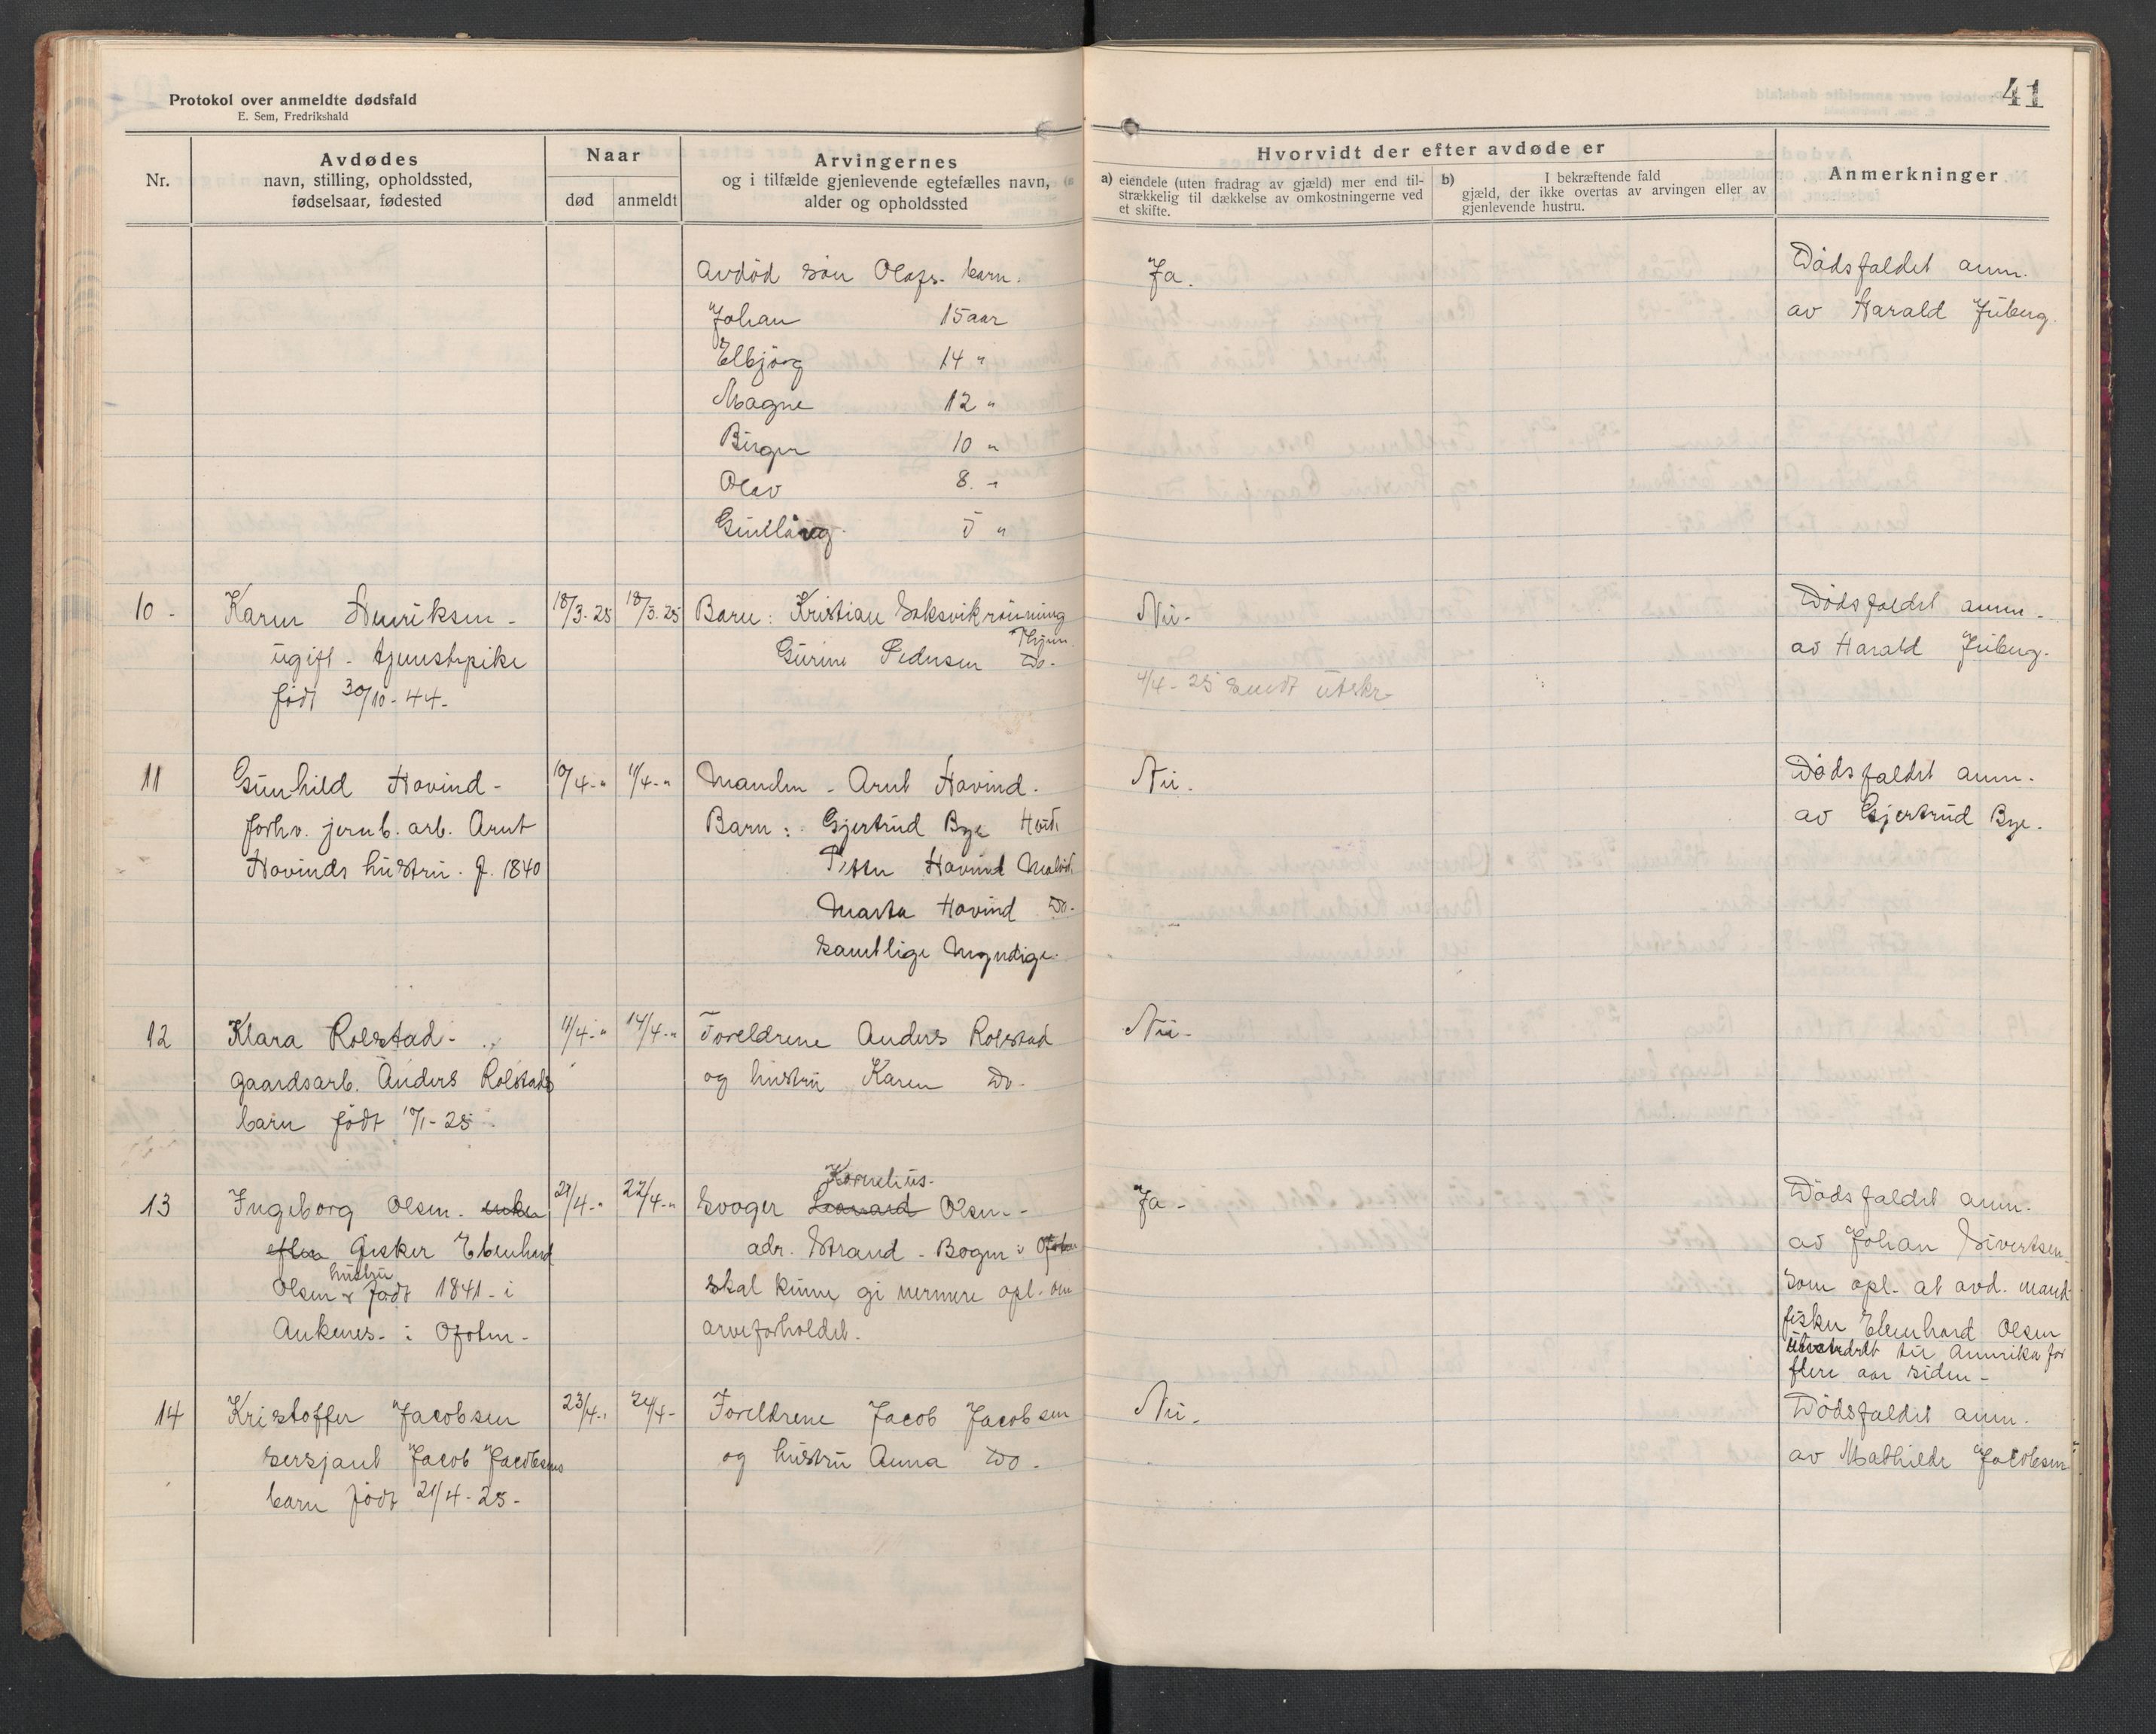 Protokol over anmeldte dødsfald
E. Sem, Fredrikshald
41
Nr.
Avdødes
navn, stilling, opholdssted,
fødselsaar, fødested
Naar
død
anmeldt
Arvingernes
og i tilfælde gjenlevende egtefælles navn,
alder og opholdssted
Hvorvidt der efter avdøde er
a) eiendele (uten fradrag av gjæld) mer end til-
strækkelig til dækkelse av omkostningerne ved
et skifte.
b) I bekræftende fald
gjæld, der ikke overtas av arvingen eller av
gjenlevende hustru.
Anmerkninger
Avdød søn Olafs. barn. Ja. Dødsfaldet anm.
Johan 15 aar av Harald Juberg.
Elbjörg 14 "
Magne 12 "
Birger 10 "
Olav 8. "
Gudlaug 5 "
10 - Karen Henriksen - 18/3-25 18/3-25 Barn: Kristian Saksvikrønning Nei. Dødsfaldet anm.
ugift - tjenestepike Gurine Pedersen Do. av Harald Juberg.
født 30/10-44- 4/4-25 sendt utskr.
11 Gunhild Hovind - 10/4-" 11/4-" Manden - Arnt Hovind. Nei. Dødsfaldet anm.
forhv. jernb. arb. Arnt Barn: Gjertrud Bye av Gjertrud Bye.
Hovinds hustru. f. 1840 Petter Hovind Malvik
Marta Hovind Do.
Samtlige Myndige.
12 Klara Rolstad - 11/4-" 14/4-" Foreldrene Anders Rolstad Nei.
gaardsarb. Anders Rolstads og hustru Karen Do.
barn født 10/1-25
Kornelius.
13 Ingeborg Olsen. enke 21/4-" 22/4-" Svoger Leonard Olsen - Ja - Dødsfaldet anm.
efter fisker Ebenhard adr. Strand - Bogen i Ofoten av Johan Sivertsen
hustru
Olsen født 1841 - i skal kunne gi nermere opl. om som opl. at avd. mand
Ankenes - i Ofoten - arveforholdet. fisker Ebenhard Olsen
utvandret til Amerika for
flere aar siden -
14 Kristoffer Jacobsen 23/4-" 24/4- Foreldrene Jacob Jacobsen Nei. Dødsfaldet anm.
sersjant Jacob Jacobsens og hustru Anna Do. av Mathilde Jacobsen
barn født 21/4-25-